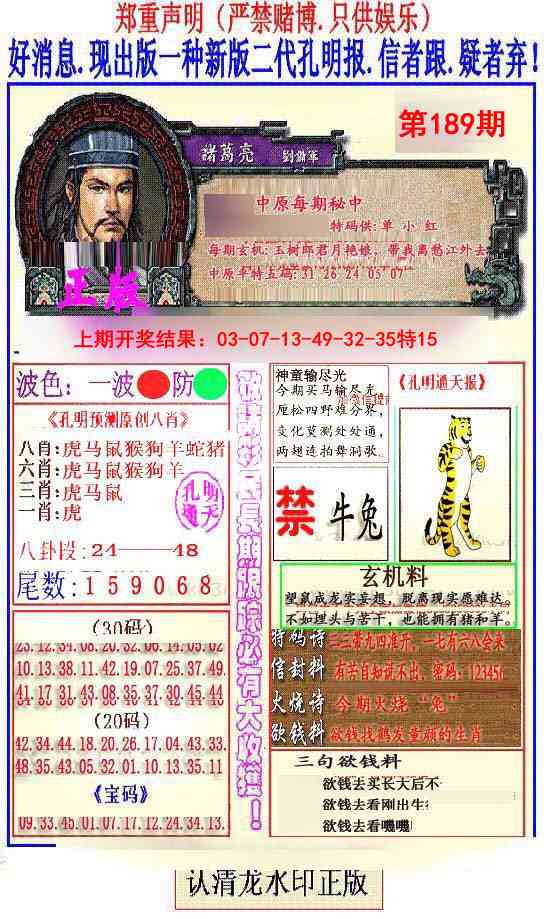 郑重声明（严禁赌博.只供娱乐）
好消息.现出版一种新版二代孔明报.信者跟.疑者弃!
第189期
諸葛亮
中原每期秘中
特码供:单 小 红
每期玄机:玉树郎君月艳娘，带我离愁江外去
中原平特五端:31 26 24 05 07
正版
上期开奖结果：03-07-13-49-32-35特15
波色：一波 防
《孔明预测原创八肖》
八肖:虎马鼠猴狗羊蛇猪
六肖:虎马鼠猴狗羊
三肖:虎马鼠
一肖:虎
孔明
通天
八卦段:24——48
尾数:159068
(30码)
23.12.34.08.20.32.06.14.05.02
10.13.38.11.42.19.07.25.37.49
41.17.31.43.08.35.37.30.45.44
(20码)
42.34.44.18.20.26.17.04.43.33.
48.35.43.05.32.01.10.13.35.11
《宝码》
09.33.45.01.07.17.12.24.34.13.
神童输尽光
今期买马输尽光
厘松四野难分界，
变化莫测处处通，
两翅连拍舞洞歌.
《孔明通天报》
禁 牛兔
玄机料
望鼠成龙实妄想，脱离现实愿难达
不如埋头与苦干，也能拥有猪和羊。
特码诗 二三带九四准开，一七有六八会来
信封料 有苦自知说不出，密码：123456
火烧诗 今期火烧“兔”
欲钱料 欲钱找鹤发童颜的生肖
三句欲钱料
欲钱去买长大后不
欲钱去看刚出生
欲钱去看嘰嘰
认清龙水印正版